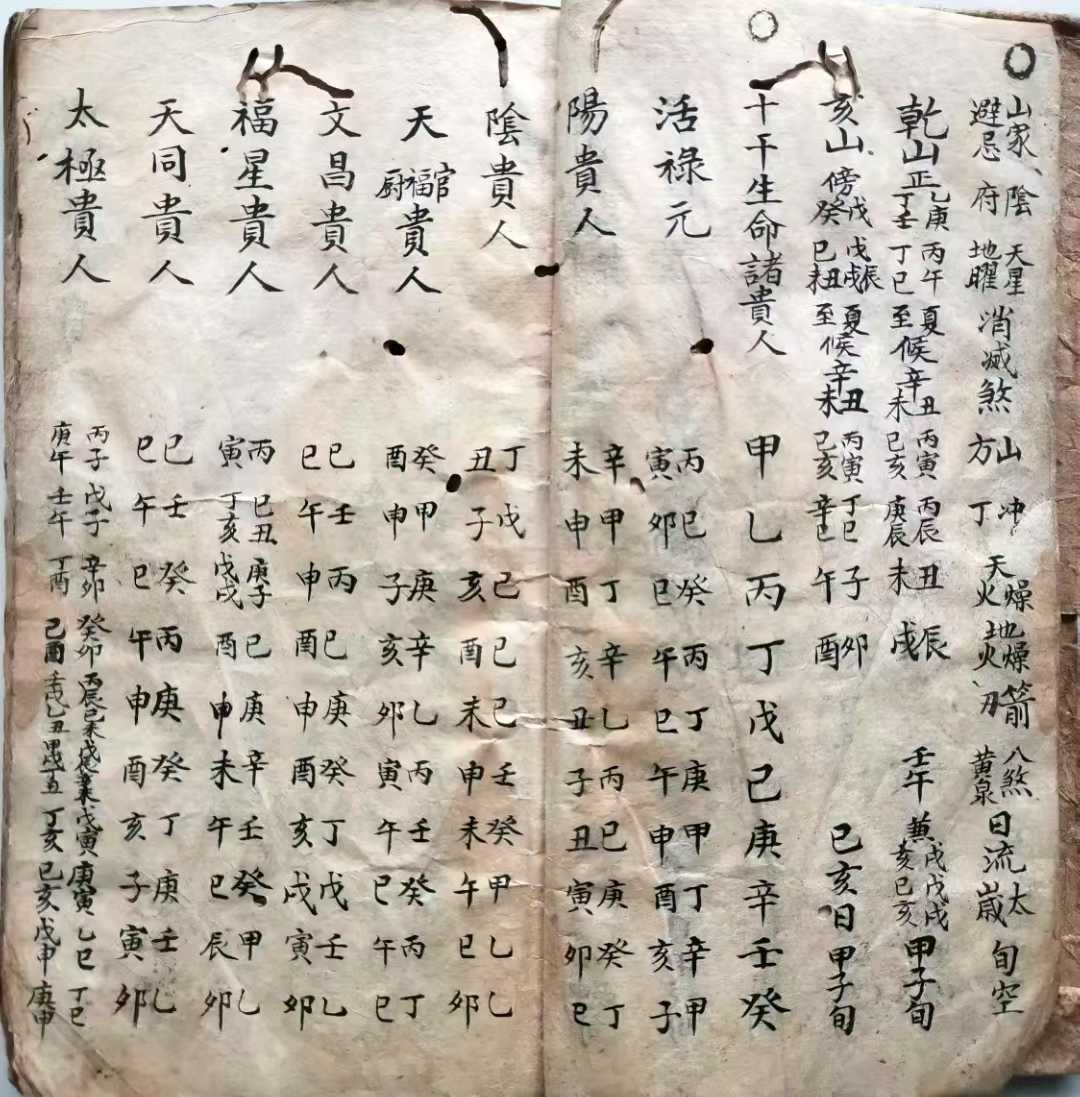 山家避忌 陰府 天星地曜 消滅煞 山方 冲丁 燥天火 燥地火 箭刃 八煞黃泉 日流太歲 旬空
乾山正 乙庚丁壬 丙午丁巳 夏至候辛丑未 丙寅巳亥 丙辰庚辰 丑未 辰戌 壬午 兼戌戌戌亥巳亥 甲子旬
亥山傍 戊癸 戊辰戊戌巳丑未 夏至候辛丑未 丙寅巳亥 丁巳辛巳 子午 卯酉 巳亥日甲子旬
十干生命諸貴人 甲 乙 丙 丁 戊 己 庚 辛 壬 癸
活祿元 丙寅 巳卯 癸巳 丙午 丁巳 庚午 甲申 丁酉 辛亥 甲子
陽貴人 辛未 甲申 丁酉 辛亥 乙丑 丙子 巳丑 庚寅 癸卯 丁巳
陰貴人 丁丑 戊子 己亥 巳酉 己未 壬申 癸未 甲午 乙巳 乙卯
天官福厨貴人 癸酉 甲申 庚子 辛亥 乙卯 丙寅 壬午 癸巳 丙午 丁巳
文昌貴人 巳巳 壬午 丙申 巳酉 庚申 癸酉 丁亥 戊戌 壬寅 乙卯
福星貴人 丙寅 巳丑丁亥 庚子戊戌 巳酉 庚申 辛未 壬午 癸巳 甲辰 乙卯
天同貴人 巳巳 壬午 癸巳 丙午 庚申 癸酉 丁亥 庚子 壬寅 乙卯
太極貴人 丙子庚午 戊子壬午 辛卯丁酉 癸卯己酉 丙辰己未戊戌 壬戌乙丑甲戌丁丑 戊寅丁亥 庚寅巳亥 乙巳戊申 丁巳庚申